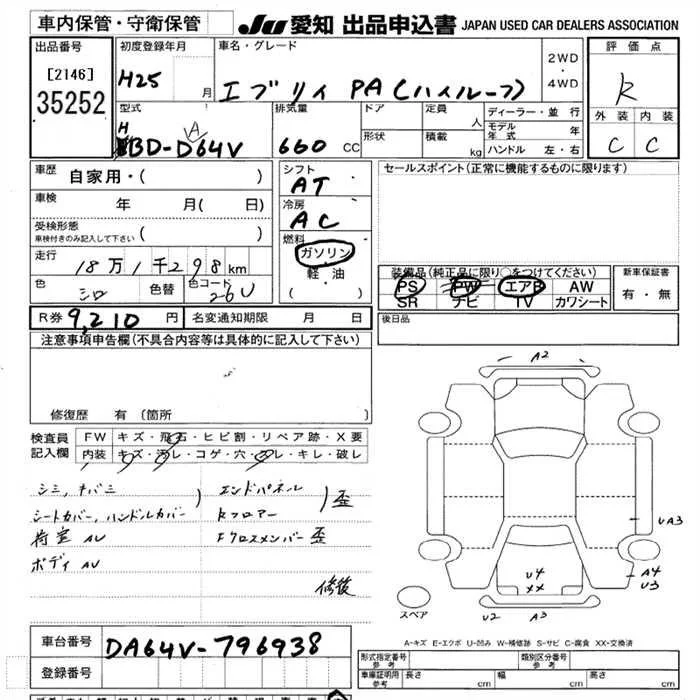 車内保管・守衛保管
JU 愛知 出品申込書 JAPAN USED CAR DEALERS ASSOCIATION
出品番号
[2146]
35252
初度登録年月
H25 月
車名・グレード
エブリィ PA(ハイルーフ)
2WD
・
4WD
評価点
R
外装 内装
C C
型式
HBD-DA64V
排気量
660 CC
ドア
形状
定員
人
積載
kg
ディーラー・並行
モデル年式 年
ハンドル 左・右
車歴 自家用・( )
車検 年 月( 日)
受検形態
車検付きのみ記入して下さい ( )
走行
18万1千298km
色 シロ 色替 色コード 26U
シフト
AT
冷房
AC
燃料
ガソリン
・
軽・油
( )
セールスポイント(正常に機能するものに限ります)
装備品(純正品に限り○をつけてください)
PS PW エアB AW
SR ナビ TV カワシート
新車保証書
有・無
R券 9,210 円 名変通知期限 月 日
後日品
注意事項申告欄(不具合内容等は具体的に記入して下さい)
修復歴 有(箇所
検査員
記入欄
FW キズ・飛石・ヒビ割・リペア跡・X要
内装 キズ・汚レ・コゲ・穴・スレ・キレ・破レ
シミ,キバミ
シートカバー,ハンドルカバー
荷室 AU
ボディ AU
エンドパネル
Rフロアー
歪
Fクロスメンバー 歪
修復
A2
UA3
A4
U3
U4
XX
U2
A3
スペア
A-キズ E-エクボ U-凹み W-補修跡 S-サビ C-腐食 XX-交換済
車台番号 DA64V-796938
登録番号
形式指定番号
参考
類別区分番号
参考
車庫証明用
参考
長さ cm 幅 cm 高さ cm